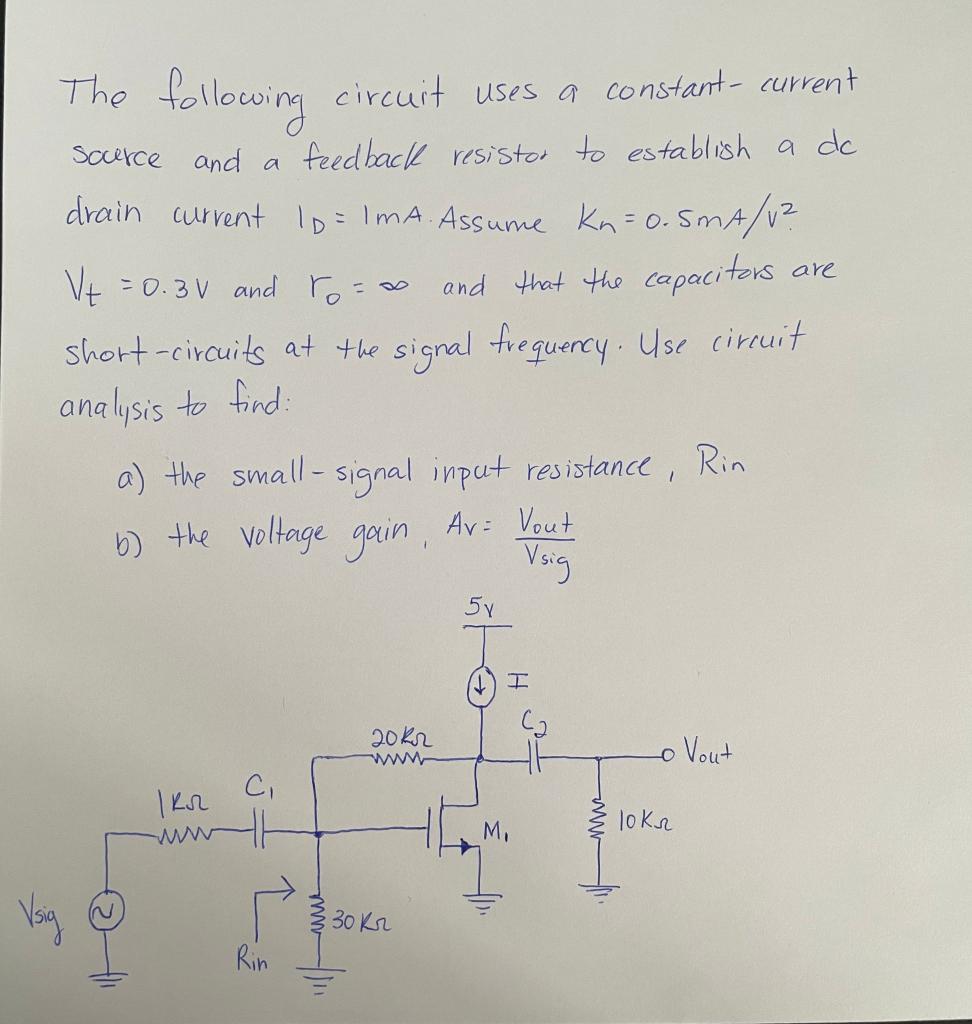 The following circuit uses a constant-current
source and a feedback resistor to establish a dc
drain current ID = 1mA. Assume Kn = 0.5mA/V².
Vt = 0.3V and ro = ∞ and that the capacitors are
short-circuits at the signal frequency. Use circuit
analysis to find:
a) the small-signal input resistance, Rin
b) the voltage gain, Av = Vout/Vsig
5V
I
C2
20KΩ
Vout
1KΩ
C1
M1
10KΩ
Vsig
30KΩ
Rin